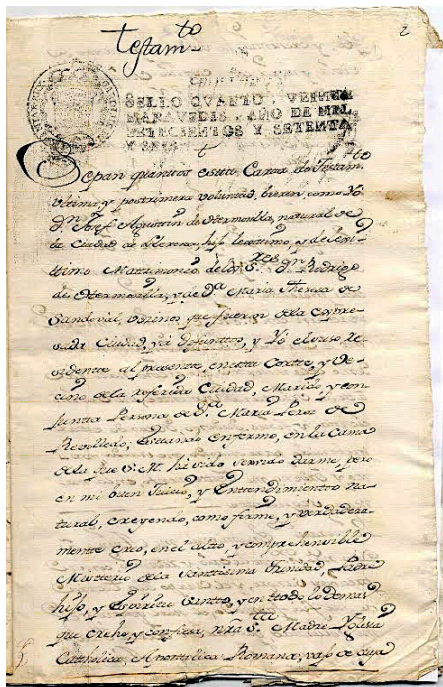 2
Testam.to
SELLO QVARTO, VEINTE
MARAVEDIS, AÑO DE MIL
SETECIENTOS Y SETENTA
Y SEIS
Sepan quantos esta Carta de Testam.to
ultima, y postrimera voluntad, vieren, como Yo
D.n Josef Agustin de Hermosilla, natural de
la Ciudad de Llerena, hijo lexitimo, y de lexi-
timo Matrimonio de los S.res D.n Rodrigo
de Hermosilla, y de D.a Maria Theresa de
Sandoval, vecinos que fueron de la expre-
sada Ciudad, ya difuntos, y Yo el suso Re-
sidente al presente, en esta Corte, y Ve-
cino de la referida Ciudad, Marido y con-
junta Persona de D.a Maria Perez de
Rebolledo, estando enfermo, en la Cama
de la que D. M. ha sido servido darme, pero
en mi buen Juicio, y Entendimiento Na-
tural, creyendo, como firme, y verdadera-
mente creo, en el alto, y comprehensible
Misterio de la Santissima Trinidad Padre
hijo, y Espiritu Santo, y en todo lo demas
que crehe y confiesa, nra S.ta Madre Yglesia
Catholica, Apostolica Romana, vajo de cuya